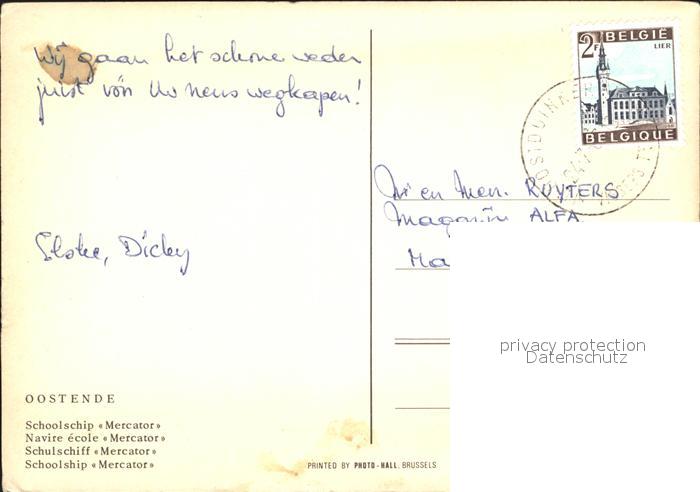 Wij gaan het schone weder
juist vóór Uw neus wegkapen!
Dicky
OOSTENDE
Schoolschip «Mercator»
Navire école «Mercator»
Schulschiff «Mercator»
Schoolship «Mercator»
PRINTED BY PHOTO-HALL, BRUSSELS
2F
BELGIË
LIER
BELGIQUE
en Mevr. RUYTERS
Magazijn ALFA
Ma
privacy protection
Datenschutz